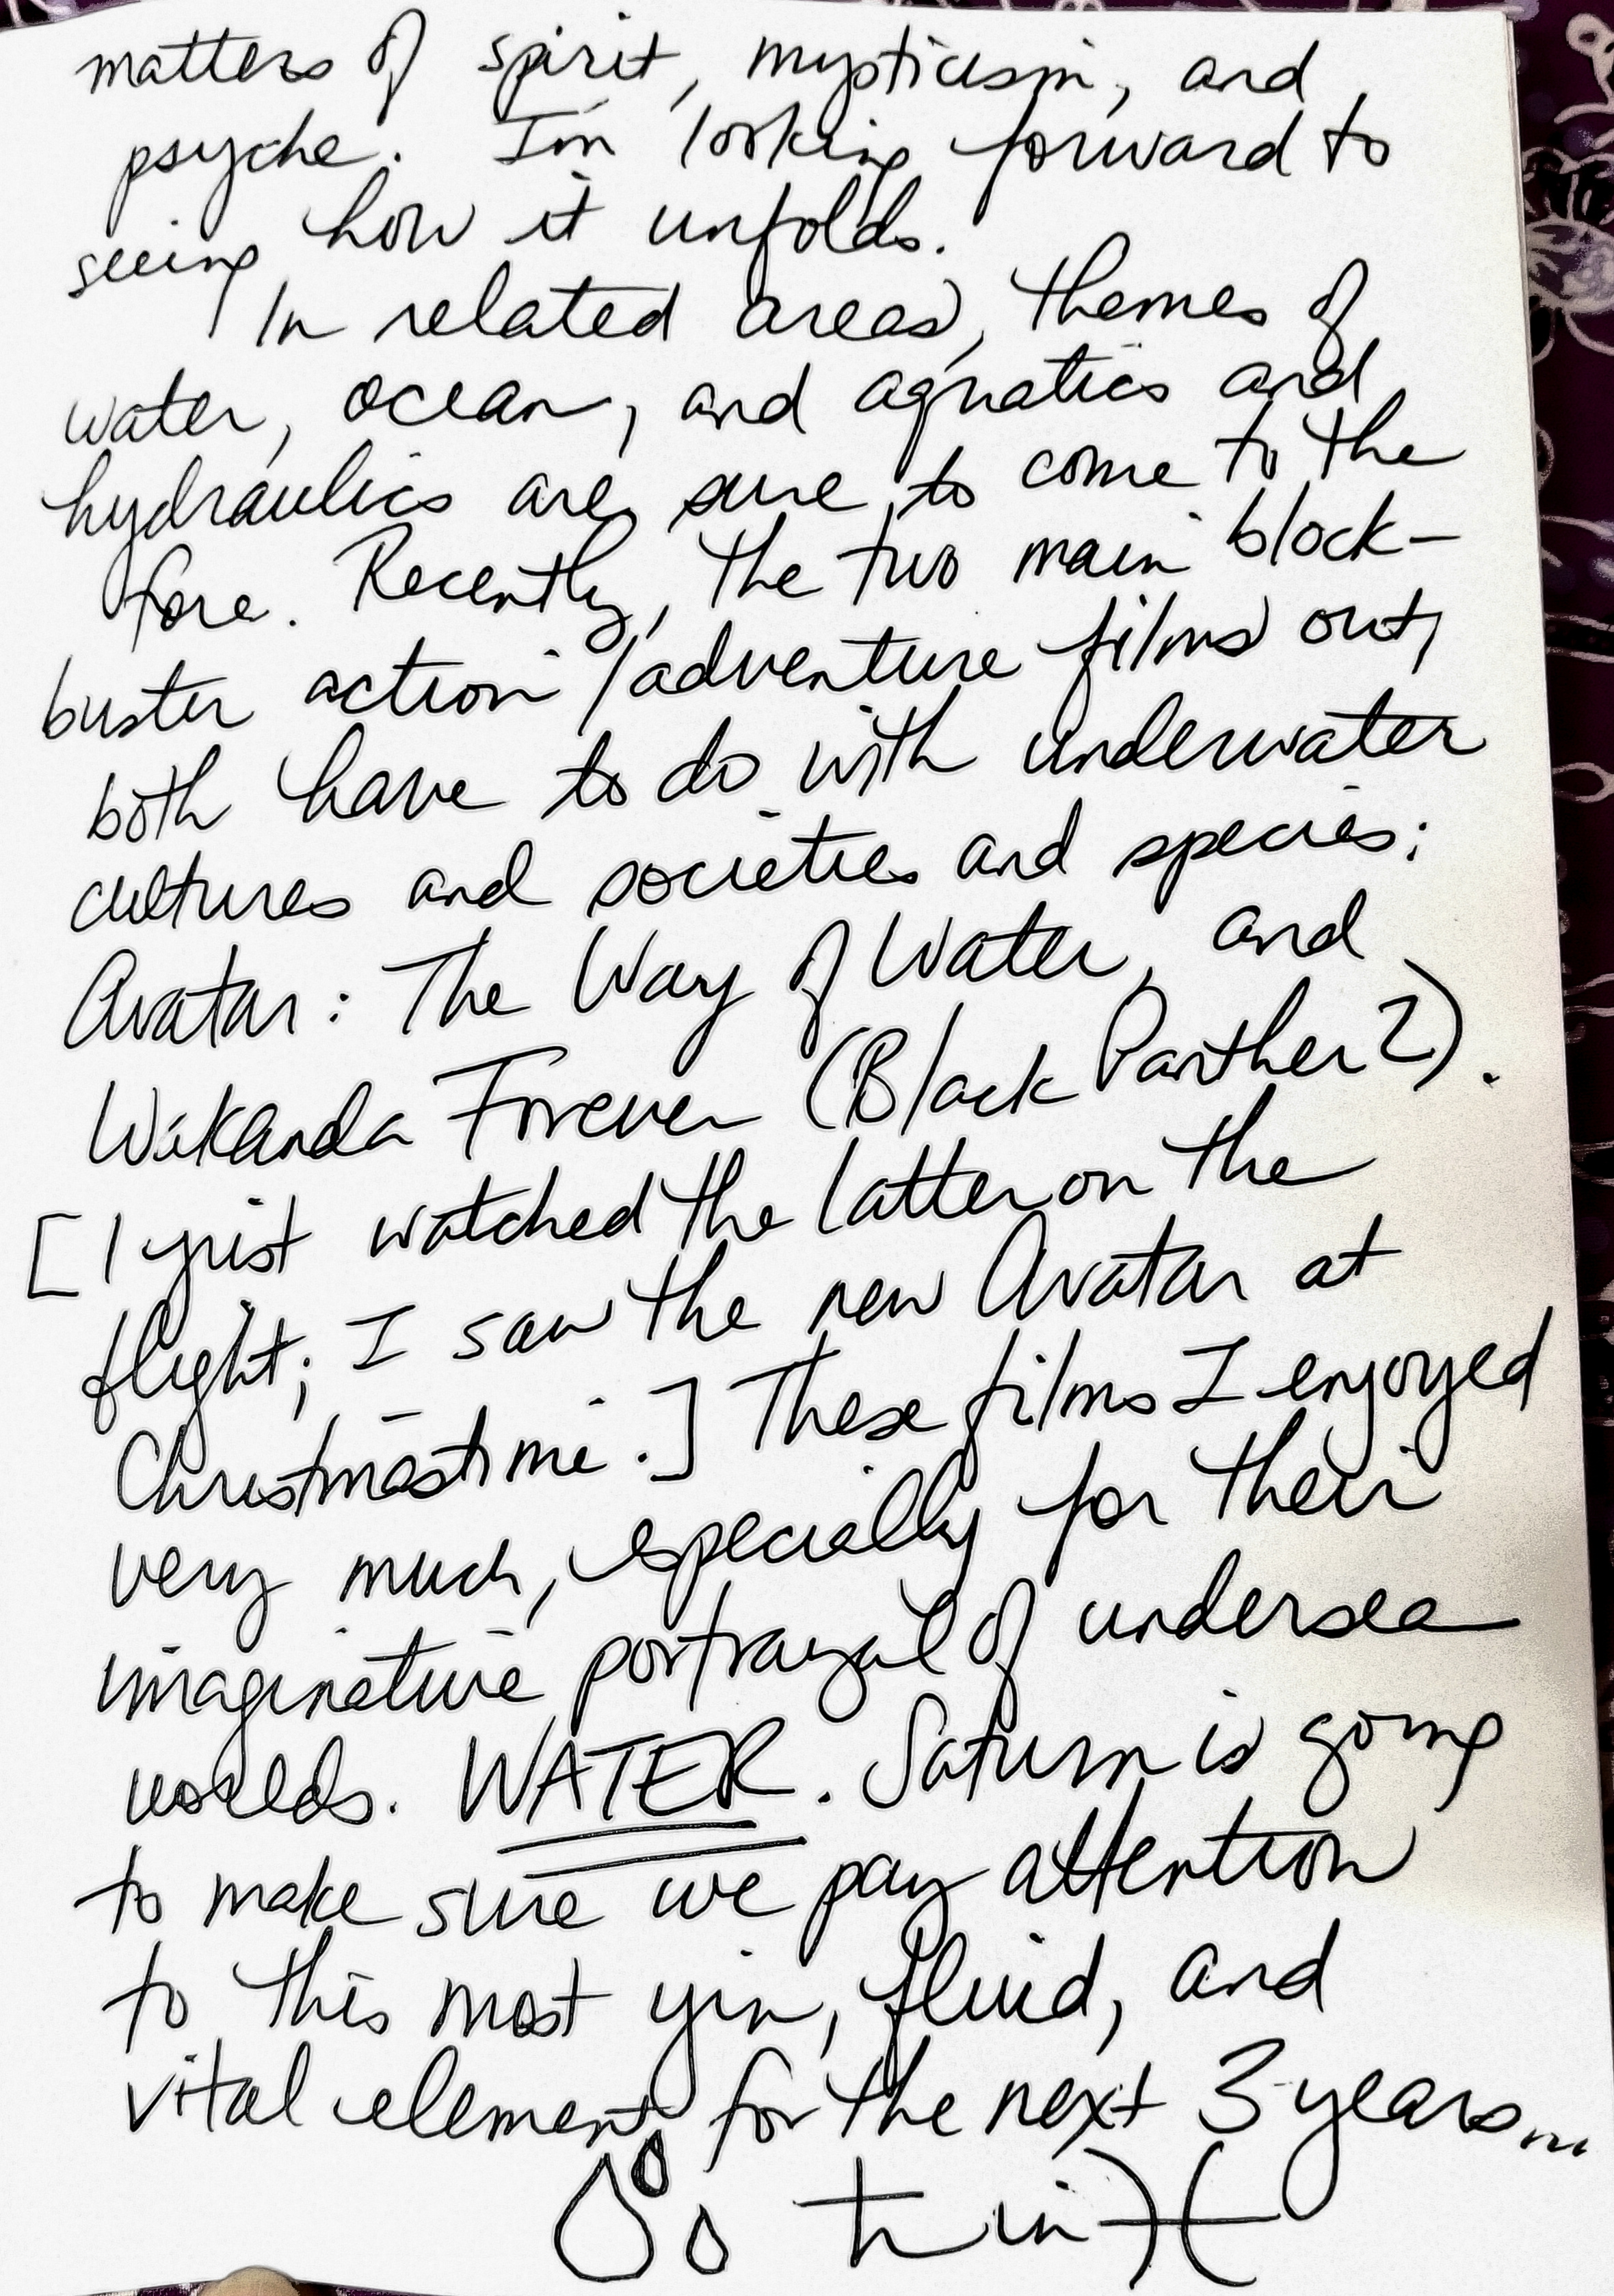 matters of spirit, mysticism, and
psyche. I'm looking forward to
seeing how it unfolds.
In related areas, themes of
water, ocean, and aquatics and
hydraulics are sure to come to the
fore. Recently, the two main block-
buster action/adventure films out,
both have to do with underwater
cultures and societies and species:
Avatar: The Way of Water, and
Wakanda Forever (Black Panther 2).
[I just watched the latter on the
flight; I saw the new Avatar at
Christmastime.] These films I enjoyed
very much, especially for their
imaginative portrayal of undersea
worlds. WATER. Saturn is going
to make sure we pay attention
to this most yin, fluid, and
vital element for the next 3 years...
♄ in ♓